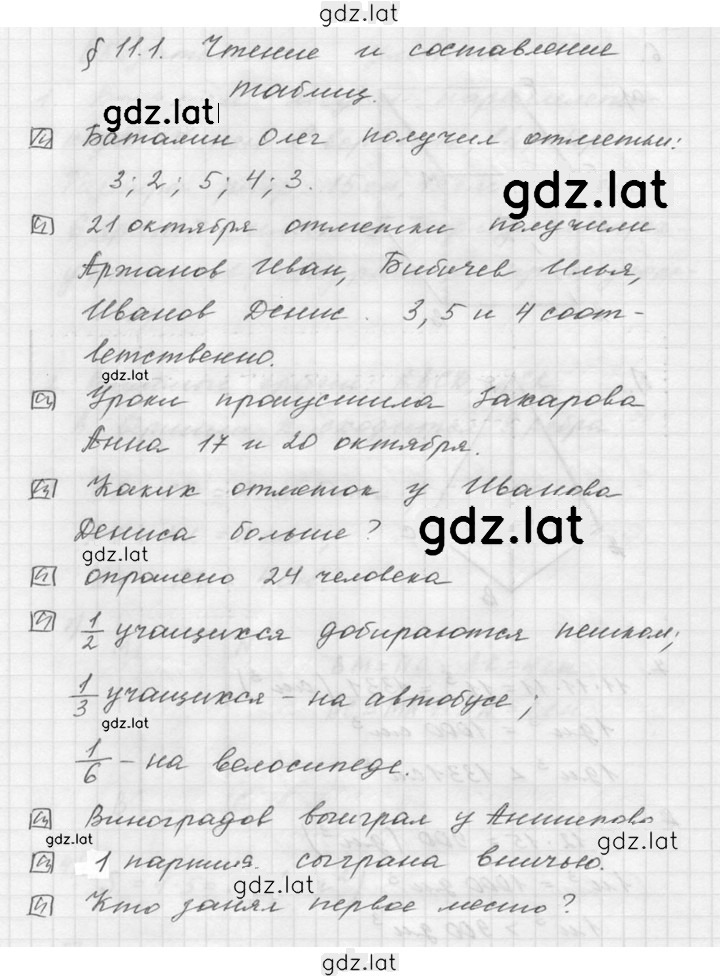 gdz.lat
§ 11.1. Чтение и составление
таблиц.
gdz.lat
Ч Баталин Олег получил отметки:
3; 2; 5; 4; 3.
gdz.lat
Ч 21 октября отметки получили
Аржанов Иван, Бибичев Илья,
Иванов Денис. 3, 5 и 4 соот-
ветственно.
gdz.lat
Ч Уроки пропустила Захарова
Анна 17 и 20 октября.
Ч Каких отметок у Иванова
Дениса больше?
gdz.lat
gdz.lat
Ч опрошено 24 человека
Ч 1/2 учащихся добираются пешком;
1/3 учащихся - на автобусе;
gdz.lat
1/6 - на велосипеде.
Ч Виноградов выиграл у Анисимова
gdz.lat
gdz.lat
Ч 1 партия сыграна вничью.
gdz.lat
Ч Кто занял первое место?
gdz.lat